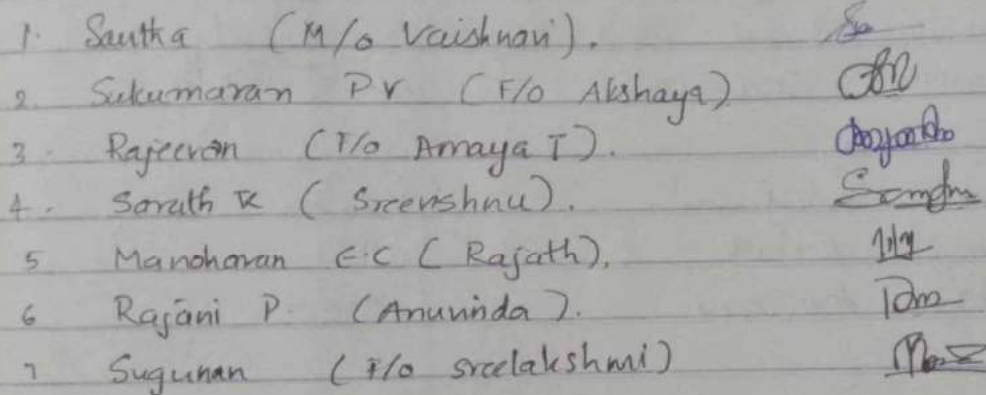 1. Santha (M/o Vaishnavi).
2. Sukumaran PV (F/o Akshaya)
3. Rajeevan (F/o Amaya T).
4. Sarath K (Sreevishnu).
5 Manoharan E.C (Rajath).
6 Rajani P. (Anuvinda).
7 Sugunan (F/o sreelakshmi)